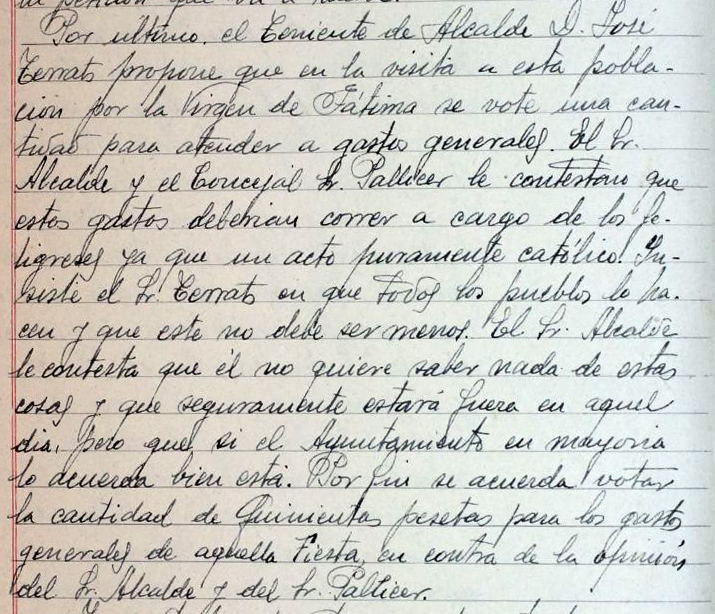 Por ultimo el Teniente de Alcalde D. José
Terrats propone que en la visita a esta pobla-
ción por la Virgen de Fátima se vote una can-
tidad para atender a gastos generales. El Sr.
Alcalde y el Concejal Sr. Pallicer le contestan que
estos gastos deberian correr a cargo de los fe-
ligreses ya que un acto puramente católico. In-
siste el Sr. Terrats en que todos los pueblos lo ha-
cen y que este no debe ser menos. El Sr. Alcalde
le contesta que él no quiere saber nada de estas
cosas y que seguramente estará fuera en aquel
dia, pero que si el Ayuntamiento en mayoria
lo acuerda bien está. Por fin se acuerda votar
la cantidad de Quinientas pesetas para los gastos
generales de aquella Fiesta, en contra de la opinión
del Sr. Alcalde y del Sr. Pallicer.